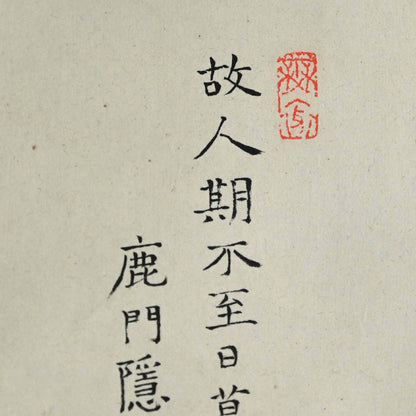 故人期不至日
鹿門隱